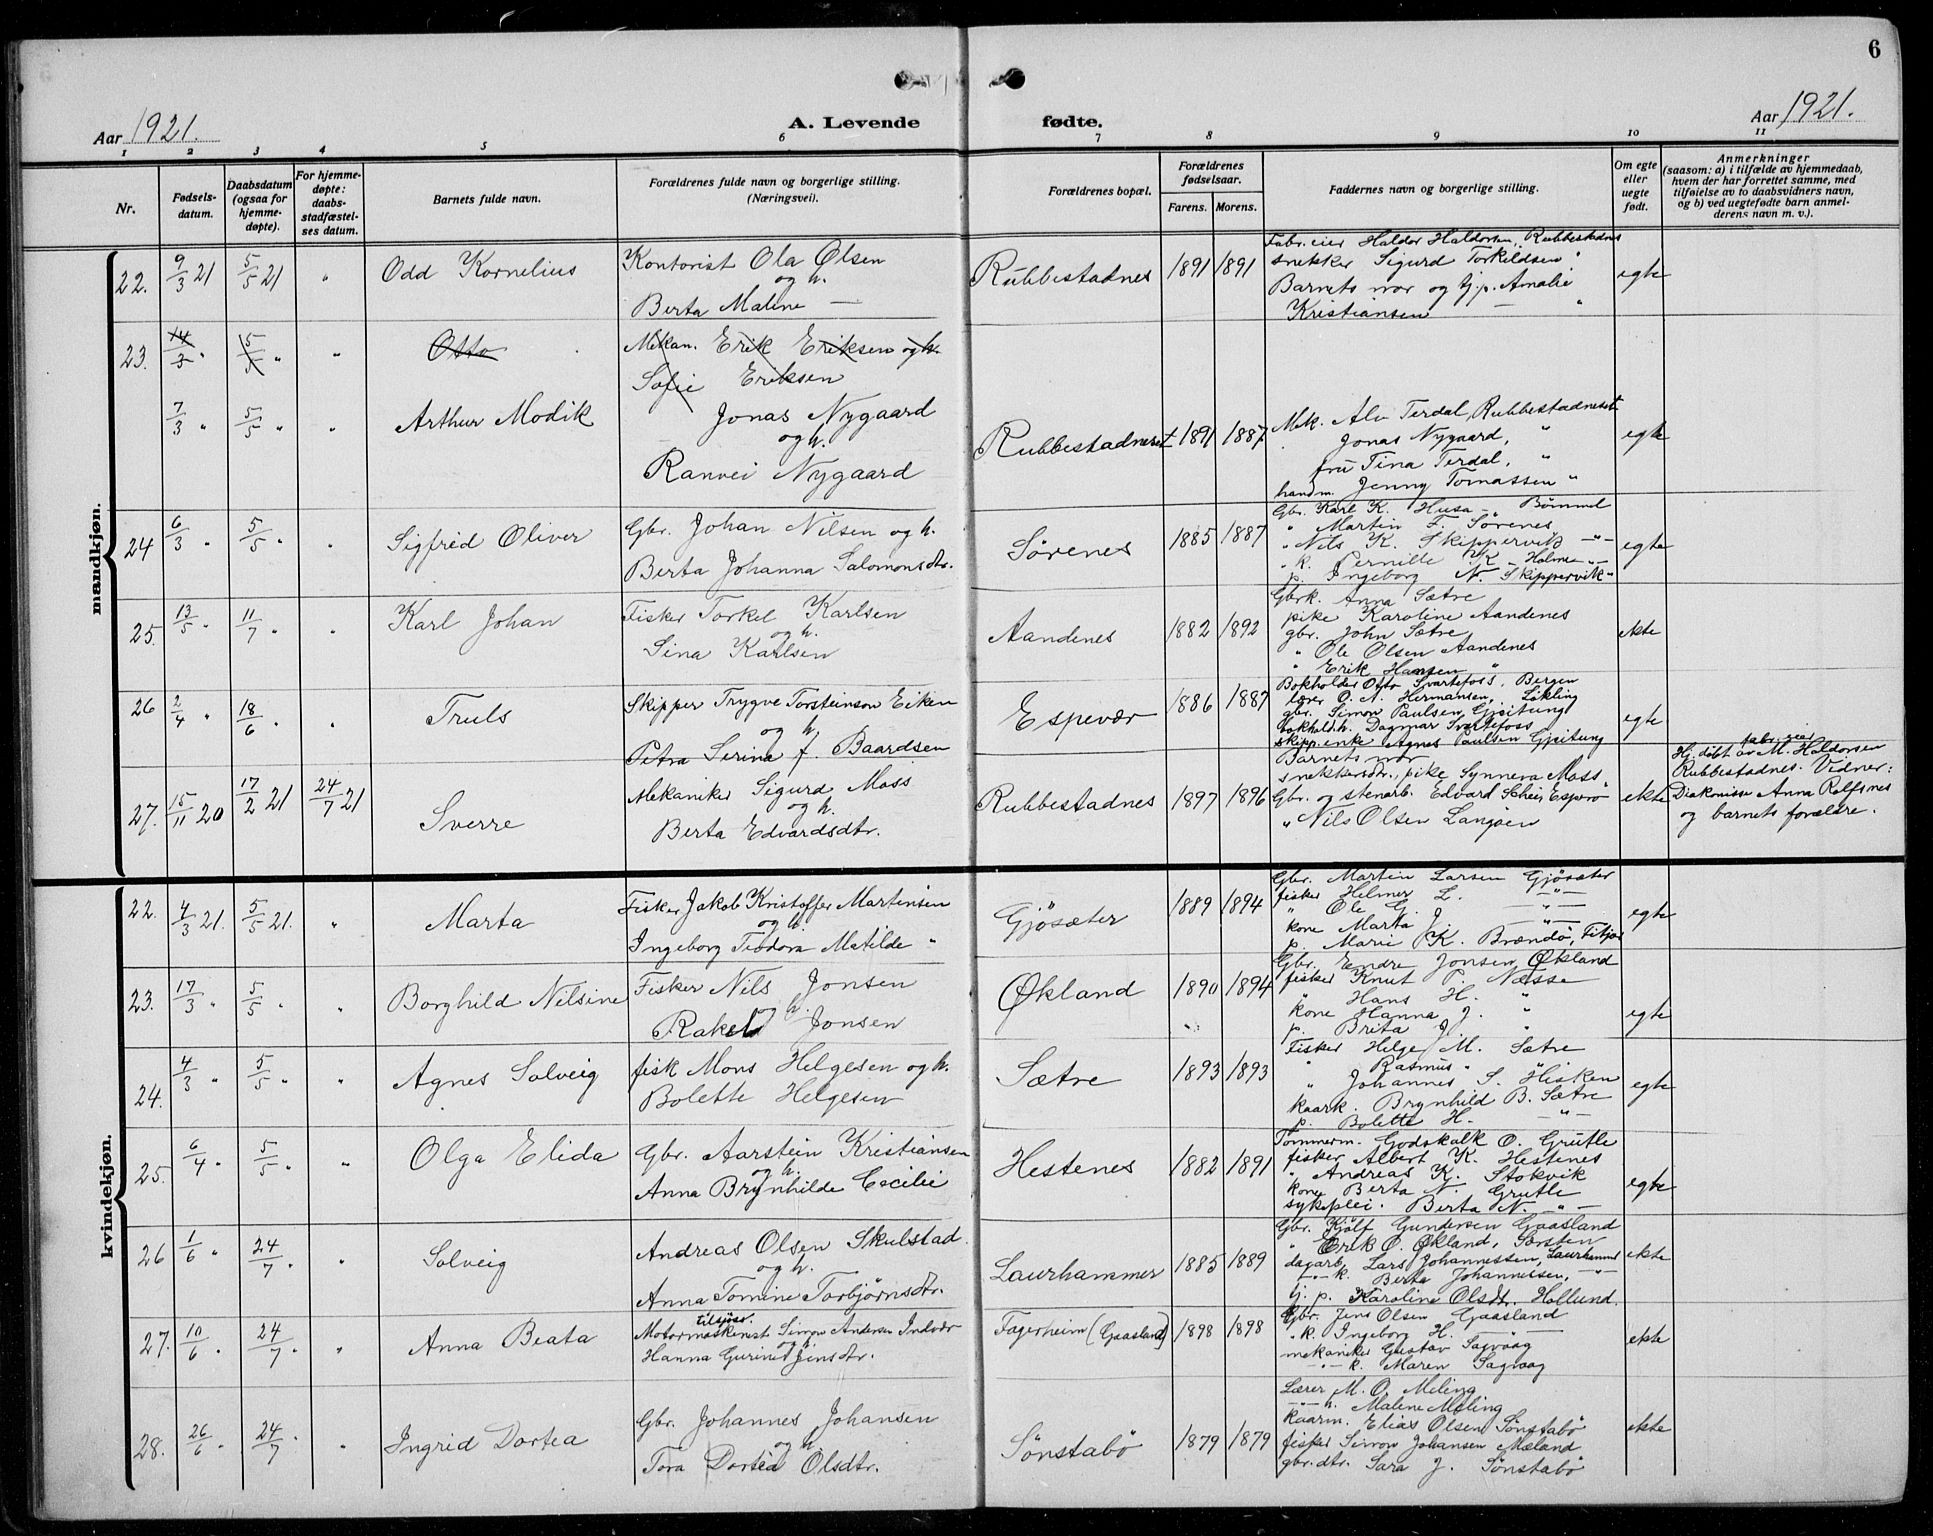 6
Aar 1921. A. Levende fødte. Aar 1921.
1 2 3 4 5 6 7 8 9 10 11
Nr.
Fødsels-
datum.
Daabsdatum
(ogsaa for
hjemme-
døpte).
For hjemme-
døpte:
daabs-
stadfæstel-
ses datum.
Barnets fulde navn.
Forældrenes fulde navn og borgerlige stilling.
(Næringsvei).
Forældrenes bopæl.
Forældrenes
fødselsaar.
Farens. Morens.
Faddernes navn og borgerlige stilling.
Om egte
eller
uegte
født.
Anmerkninger
(saasom: a) i tilfælde av hjemmedaab,
hvem der har forrettet samme, med
tilføielse av to daabsvidners navn,
og b) ved uegtefødte barn anmel-
derens navn m. v.).
mandkjøn.
22. 9/3 21 5/5 21 " Odd Kornelius
Kontorist Ola Olsen
og h.
Berta Maline —
Rubbestadnes 1891 1891
Fabr. eier Haldor Haldorsen, Rubbestadnes
snekker Sigurd Torkildsen "
Barnets mor og tj. p. Amalie
Kristiansen "
egte
23. 14/3 " 5/5 " " Otto
Mekan. Erik Eriksen og h.
Sofie Eriksen
7/3 " 5/5 " " Arthur Modik
Jonas Nygaard
og h.
Ranvei Nygaard
Rubbestadneset 1891 1887
Mek. Alv Terdal, Rubbestadneset
Jonas Nygaard, "
fru Tina Terdal, "
handm. Jenny Tomassen "
egte
24 6/3 " 5/5 " " Sigfred Oliver
Gbr. Johan Nilsen og h.
Berta Johanna Salomonsdtr.
Sørenes 1885 1887
Gbr. Karl K. Husa — Bømmel
" Martin F. Sørenes
" Nils K. Skippervik —"—
" k. Pernille K. Holme —"—
p. Ingeborg N. Skippervik "
egte
25. 13/5 " 11/7 " " Karl Johan
Fisker Torkel Karlsen
og h.
Sina Karlsen
Aandenes 1882 1892
Gbrk. Anna Sætre
pike Karoline Aandenes
gbr. John Sætre
" Ole Olsen Aandenes
" Erik Hansen "
ekte
26 2/4 " 18/6 " " Truls
Skipper Trygve Torsteinson Eiken
og h.
Petra Serina f. Baardsen
Espevær 1886 1887
Bokholder Otto Svartefoss, Bergen
lærer O. A. Hermansen, Lykling
gbr. Simon Paulsen Gjeitung
bokhold.h. Dagmar Svartefoss
skipp.enke Agnes Paulsen Gjeitung
Barnets mor
egte
27. 15/11 20 17/2 21 24/7 21 Sverre
Mekaniker Sigurd Moss
og h.
Berta Edvardsdtr.
Rubbestadnes 1897 1896
snekkersdtr., pike Synneva Moss
Gbr. og stenarb. Edvard Schei, Esprø
" Nils Olsen Langøen
ekte
fabr. eier
Hj. døbt av M. Haldorsen
Rubbestadnes. Vidner:
Diakonisse Anna Rolfsnes
og barnets forældre.
kvindekjøn.
22. 4/3 21. 5/5 21. " Marta
Fisker Jakob Kristoffer Martinsen
og h.
Ingeborg Teodora Matilde "
Gjøsæter 1889 1894
Gbr. Martin Larsen Gjøsæter
fisker Helmer L. —"—
" Ole G. —"—
kone Marta J. —"—
p. Marie K. Brændø, Fitjar
egte
23. 17/3 " 5/5 " " Borghild Nilsine
Fisker Nils Jonsen
og h.
Rakel Jonsen
Økland 1890 1894
Gbr. Endre Jonsen, Økland
fisker Knut P. Næsse
" Hans H. "
kone Hanna J. "
p. Brita J. "
egte
24. 4/3 " 5/5 " " Agnes Solveig
fisk Mons Helgesen og h.
Bolette Helgesen
Sætre 1893 1893
Fisker Helge M. Sætre
" Rasmus "
" Johannes S. Hisken
kaark. Brynhild B. Sætre
p. Bolette H. —"—
egte
25. 6/4 " 5/5 " " Olga Elida
Gbr. Aarstein Kristiansen
og h.
Anna Brynhilde Cecilie
Hestenes 1882 1891
Tømmerm. Godskalk O. Grutle
fisker Albert K. Hestenes
" Andreas K. Stokvik
kone Berta N. Grutle
sykeplei. Berta N. —"—
egte
26 1/6 " 24/7 " " Solveig
Andreas Olsen Skulstad.
og h.
Anna Tomine Torbjørnsdtr.
Laurhammer 1885 1889
Gbr. Kjølf Gundersen Gaasland
" Erik O. Økland, Sørsten
dagarb. Lars Johannessen, Laurhammer
—"— k. Berta Johannessen, —"—
tj. p. Karoline Olsdtr. Hollund.
ekte
27. 10/6 " 24/7 " " Anna Beata
tilsjøss.
Motormaskinist Simon Andersen Indvær
og h.
Hanna Gurine Jensdtr.
Fagerheim (Gaasland) 1898 1898
Gbr. Jens Olsen Gaasland
" k. Ingeborg H. —"—
mekaniker Gustav Sagvaag
—"— k. Maren Sagvaag
ekte
28. 26/6 " 24/7 " " Ingrid Dortea
Gbr. Johannes Johansen
og h.
Tora Dortea Olsdtr.
Sønstabø 1879 1879
Lærer M. O. Meling
—"— h. Malene Meling
kaarm. Elias Olsen Sønstabø
fisker Simon Johansen Mæland
gbr. dtr. Sara J. Sønstabø
ekte